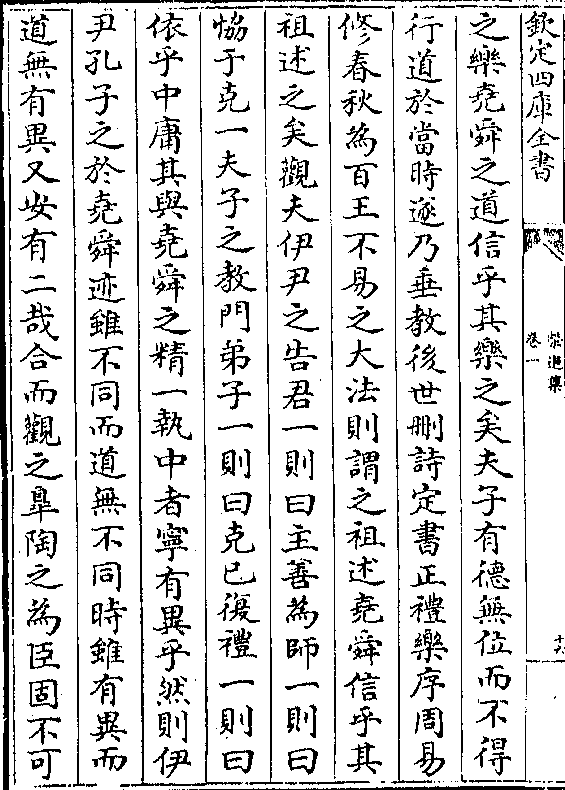 欽定四庫全書
榮進集
卷一
十六
之樂堯舜之道信乎其樂之矣夫子有德無位而不得
行道於當時遂乃垂教後世刪詩定書正禮樂序周易
修春秋為百王不易之大法則謂之祖述堯舜信乎其
祖述之矣觀夫伊尹之告君一則曰主善為師一則曰
恊于克一夫子之教門弟子一則曰克已復禮一則曰
依乎中庸其與堯舜之精一執中者寧有異乎然則伊
尹孔子之於堯舜迹雖不同而道無不同時雖有異而
道無有異又安有二哉合而觀之臯陶之為臣固不可